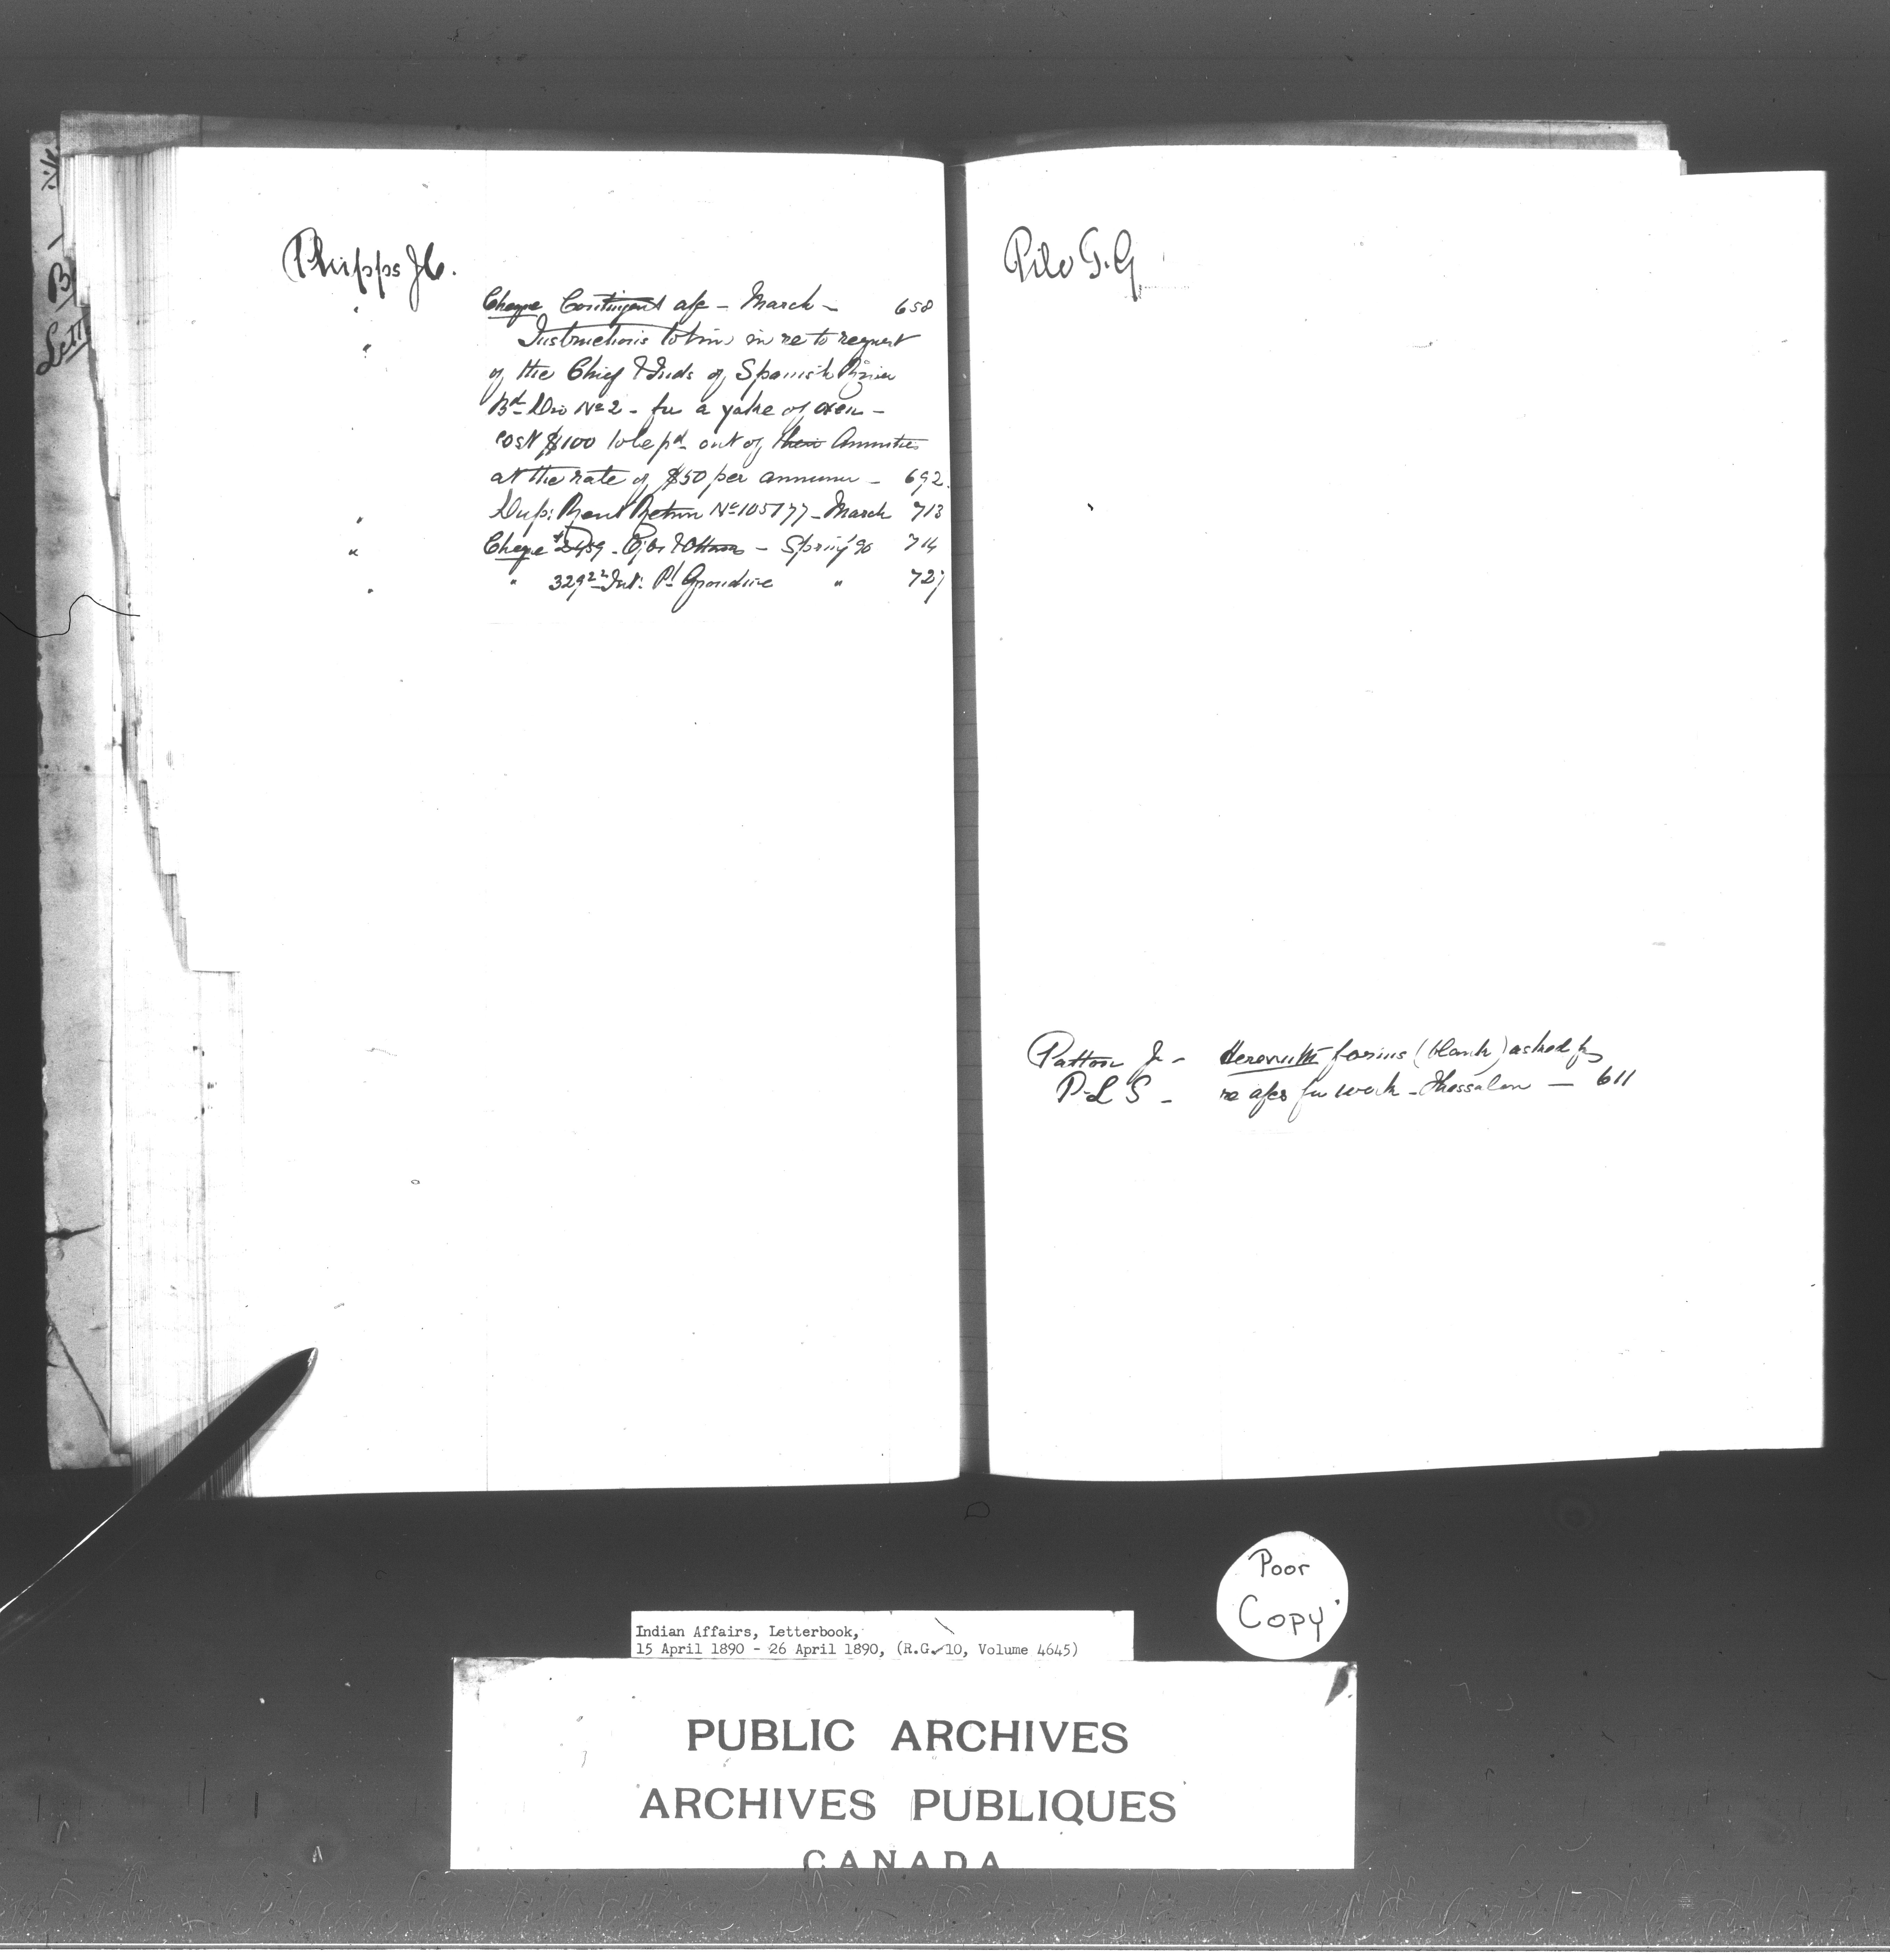 Phipps J C.
" Cheque Contingent a/c - March - 658
" Instructions to him in re to request
of the Chief & Inds of Spanish River
Bd Div No 2 - for a yoke of oxen -
cost $100 to be pd out of their Annuities
at the rate of $50 per annum - 692.
" Dup: Rent Return No 105177 - March 713
" Cheque - Ojbs & Ottawas - Spring '90 714
" " 329 22 Int: Pt Grondine " 727
Pile G. G
Patton J - Herewith forms (blank) asked for
P. L S - re a/cs for work - Thessalon - 611
Poor
Copy
Indian Affairs, Letterbook,
15 April 1890 - 26 April 1890, (R.G. 10, Volume 4645)
PUBLIC ARCHIVES
ARCHIVES PUBLIQUES
CANADA